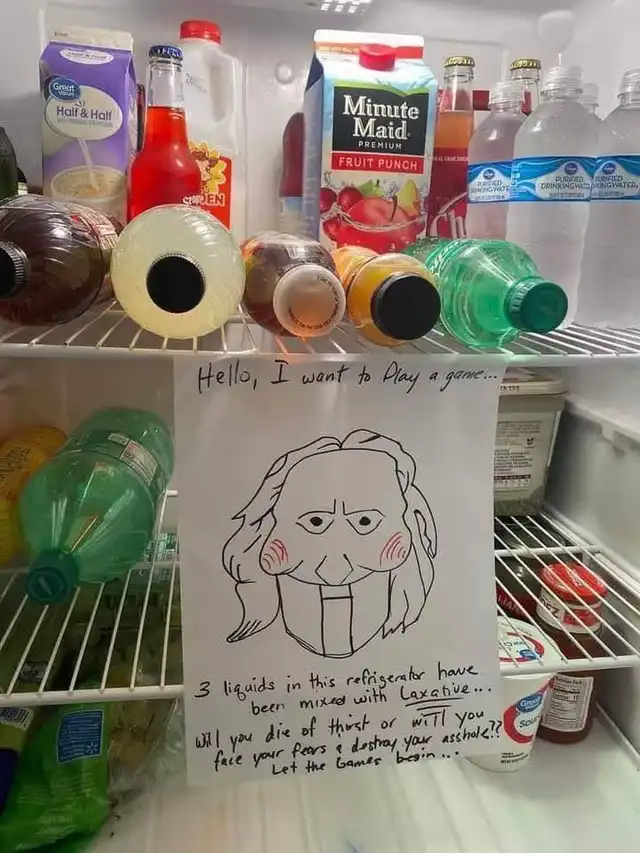 Great Value
Half & Half
Minute
Maid
PREMIUM
FRUIT PUNCH
PURIFIED
DRINKING WATER
PURIFIED
DRINKING WATER
PURIFIED
DRINKING WATER
Hello, I want to Play a game...
3 liquids in this refrigerator have
been mixed with Laxative...
Will you die of thirst or will you
face your fears & destroy your asshole??
Let the Games begin...
Great Value
Sour